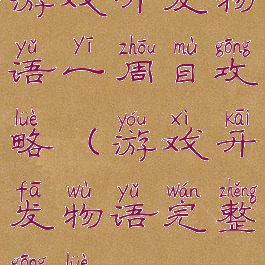 游戏开发物
yǔ yī zhōu mù gōng
语一周目攻
lüè yóu xì kāi
略（游戏开
fā wù yǔ wán zhěng
发物语完整
gōng lüè